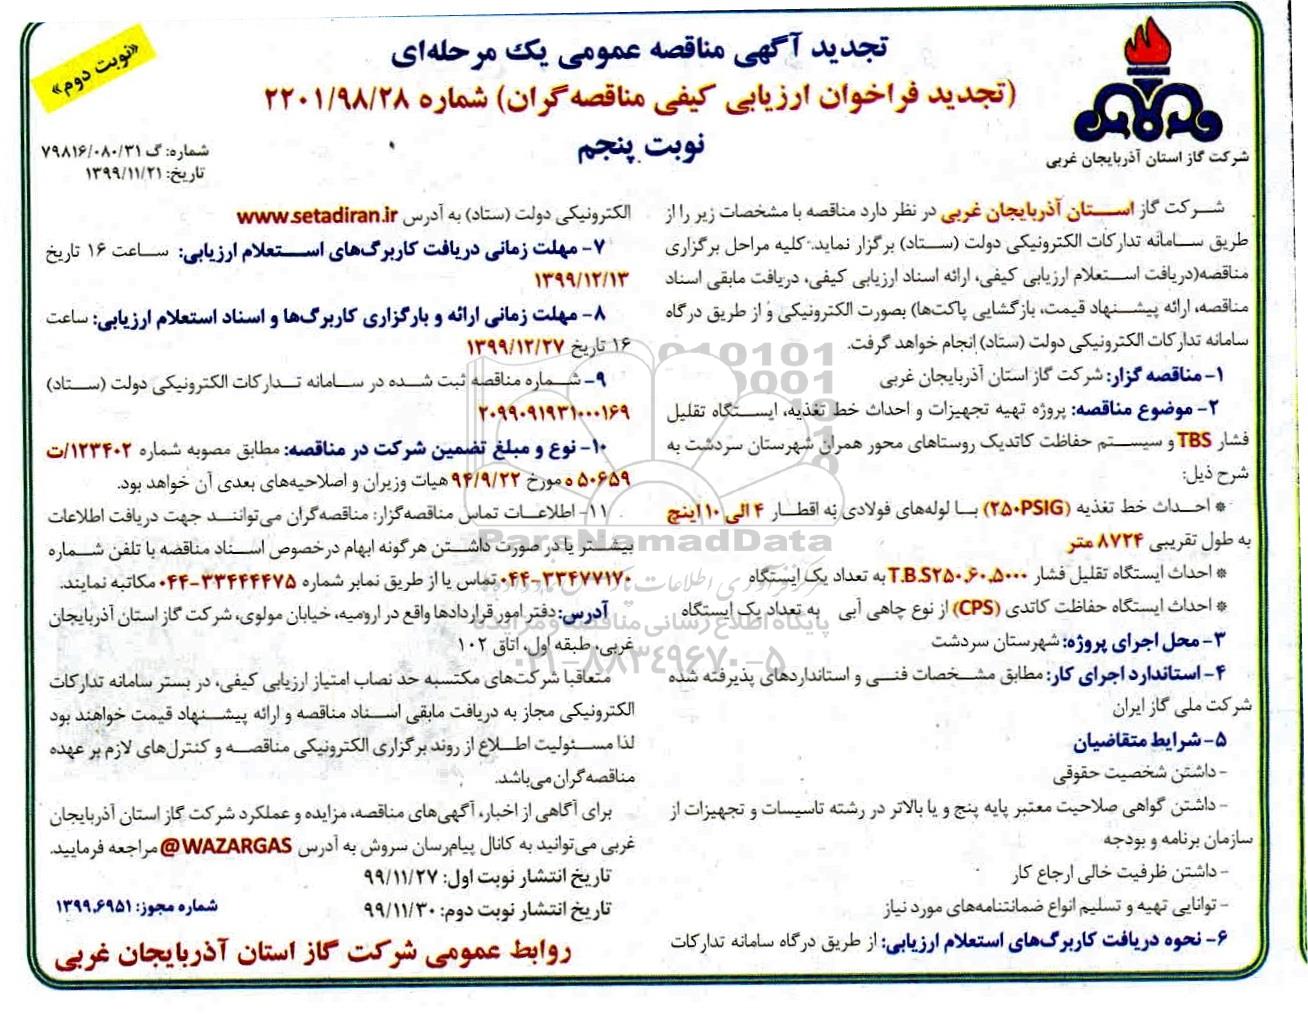 تجدید آگهی مناقصه عمومی یک مرحله‌ای
(تجدید فراخوان ارزیابی کیفی مناقصه‌گران) شماره ۲۲۰۱/۹۸/۲۸
نوبت پنجم
«نوبت دوم»
شماره: گ ۷۹۸۱۶/۰۸۰/۳۱
تاریخ: ۱۳۹۹/۱۱/۲۱
شرکت گاز استان آذربایجان غربی
شرکت گاز استان آذربایجان غربی در نظر دارد مناقصه با مشخصات زیر را از
طریق سامانه تدارکات الکترونیکی دولت (ستاد) برگزار نماید. کلیه مراحل برگزاری
مناقصه(دریافت استعلام ارزیابی کیفی، ارائه اسناد ارزیابی کیفی، دریافت مابقی اسناد
مناقصه، ارائه پیشنهاد قیمت، بازگشایی پاکت‌ها) بصورت الکترونیکی و از طریق درگاه
سامانه تدارکات الکترونیکی دولت (ستاد) انجام خواهد گرفت.
۱- مناقصه گزار: شرکت گاز استان آذربایجان غربی
۲- موضوع مناقصه: پروژه تهیه تجهیزات و احداث خط تغذیه، ایستگاه تقلیل
فشار TBS و سیستم حفاظت کاتدیک روستاهای محور همران شهرستان سردشت به
شرح ذیل:
* احداث خط تغذیه (۲۵۰PSIG) با لوله‌های فولادی به اقطار ۴ الی ۱۰ اینچ
به طول تقریبی ۸۷۲۴ متر
* احداث ایستگاه تقلیل فشار T.B.S۲۵۰.۶۰.۵۰۰۰ به تعداد یک ایستگاه
* احداث ایستگاه حفاظت کاتدی (CPS) از نوع چاهی آبی به تعداد یک ایستگاه
۳- محل اجرای پروژه: شهرستان سردشت
۴- استاندارد اجرای کار: مطابق مشخصات فنی و استانداردهای پذیرفته شده
شرکت ملی گاز ایران
۵- شرایط متقاضیان
- داشتن شخصیت حقوقی
- داشتن گواهی صلاحیت معتبر پایه پنج و یا بالاتر در رشته تاسیسات و تجهیزات از
سازمان برنامه و بودجه
- داشتن ظرفیت خالی ارجاع کار
- توانایی تهیه و تسلیم انواع ضمانتنامه‌های مورد نیاز
۶- نحوه دریافت کاربرگ‌های استعلام ارزیابی: از طریق درگاه سامانه تدارکات
الکترونیکی دولت (ستاد) به آدرس www.setadiran.ir
۷- مهلت زمانی دریافت کاربرگ‌های استعلام ارزیابی: ساعت ۱۶ تاریخ
۱۳۹۹/۱۲/۱۳
۸- مهلت زمانی ارائه و بارگزاری کاربرگ‌ها و اسناد استعلام ارزیابی: ساعت
۱۶ تاریخ ۱۳۹۹/۱۲/۲۷
۹- شماره مناقصه ثبت شده در سامانه تدارکات الکترونیکی دولت (ستاد)
۲۰۹۹۰۹۱۹۳۱۰۰۰۱۶۹
۱۰- نوع و مبلغ تضمین شرکت در مناقصه: مطابق مصوبه شماره ۱۲۳۴۰۲/ت
۵۰۶۵۹ ه مورخ ۹۴/۹/۲۲ هیات وزیران و اصلاحیه‌های بعدی آن خواهد بود.
۱۱- اطلاعات تماس مناقصه‌گزار: مناقصه‌گران می‌توانند جهت دریافت اطلاعات
بیشتر یا در صورت داشتن هرگونه ابهام درخصوص اسناد مناقصه با تلفن شماره
۰۴۴-۳۳۴۷۷۱۷۰ تماس یا از طریق نمابر شماره ۰۴۴-۳۳۴۴۴۴۷۵ مکاتبه نمایند.
آدرس: دفتر امور قراردادها واقع در ارومیه، خیابان مولوی، شرکت گاز استان آذربایجان
غربی، طبقه اول، اتاق ۱۰۲
متعاقبا شرکت‌های مکتسبه حد نصاب امتیاز ارزیابی کیفی، در بستر سامانه تدارکات
الکترونیکی مجاز به دریافت مابقی اسناد مناقصه و ارائه پیشنهاد قیمت خواهند بود
لذا مسئولیت اطلاع از روند برگزاری الکترونیکی مناقصه و کنترل‌های لازم بر عهده
مناقصه‌گران می‌باشد.
برای آگاهی از اخبار، آگهی‌های مناقصه، مزایده و عملکرد شرکت گاز استان آذربایجان
غربی می‌توانید به کانال پیام‌رسان سروش به آدرس @WAZARGAS مراجعه فرمایید.
تاریخ انتشار نوبت اول: ۹۹/۱۱/۲۷
تاریخ انتشار نوبت دوم: ۹۹/۱۱/۳۰
شماره مجوز: ۱۳۹۹.۶۹۵۱
روابط عمومی شرکت گاز استان آذربایجان غربی
ParsNamadData
پایگاه اطلاع رسانی مناقصه و مزایده
۰۲۱-۸۸۳۴۹۶۷۰-۵